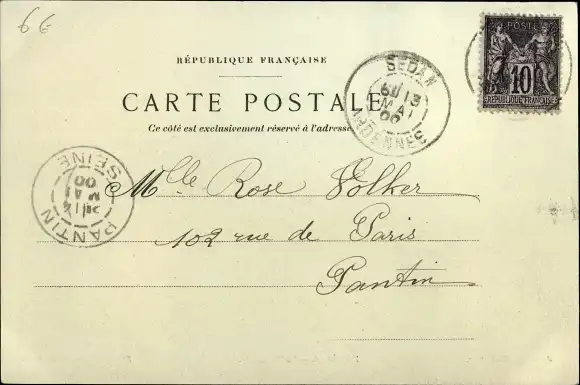 6 €
POSTE
10
RÉPUBLIQUE FRANÇAISE
RÉPUBLIQUE FRANÇAISE
CARTE POSTALE
Ce côté est exclusivement réservé à l'adresse
SEDAN
13
MAI
00
ARDENNES
PANTIN
14
MAI
00
SEINE
Mlle Rose Volker
102 rue de Paris
Pantin